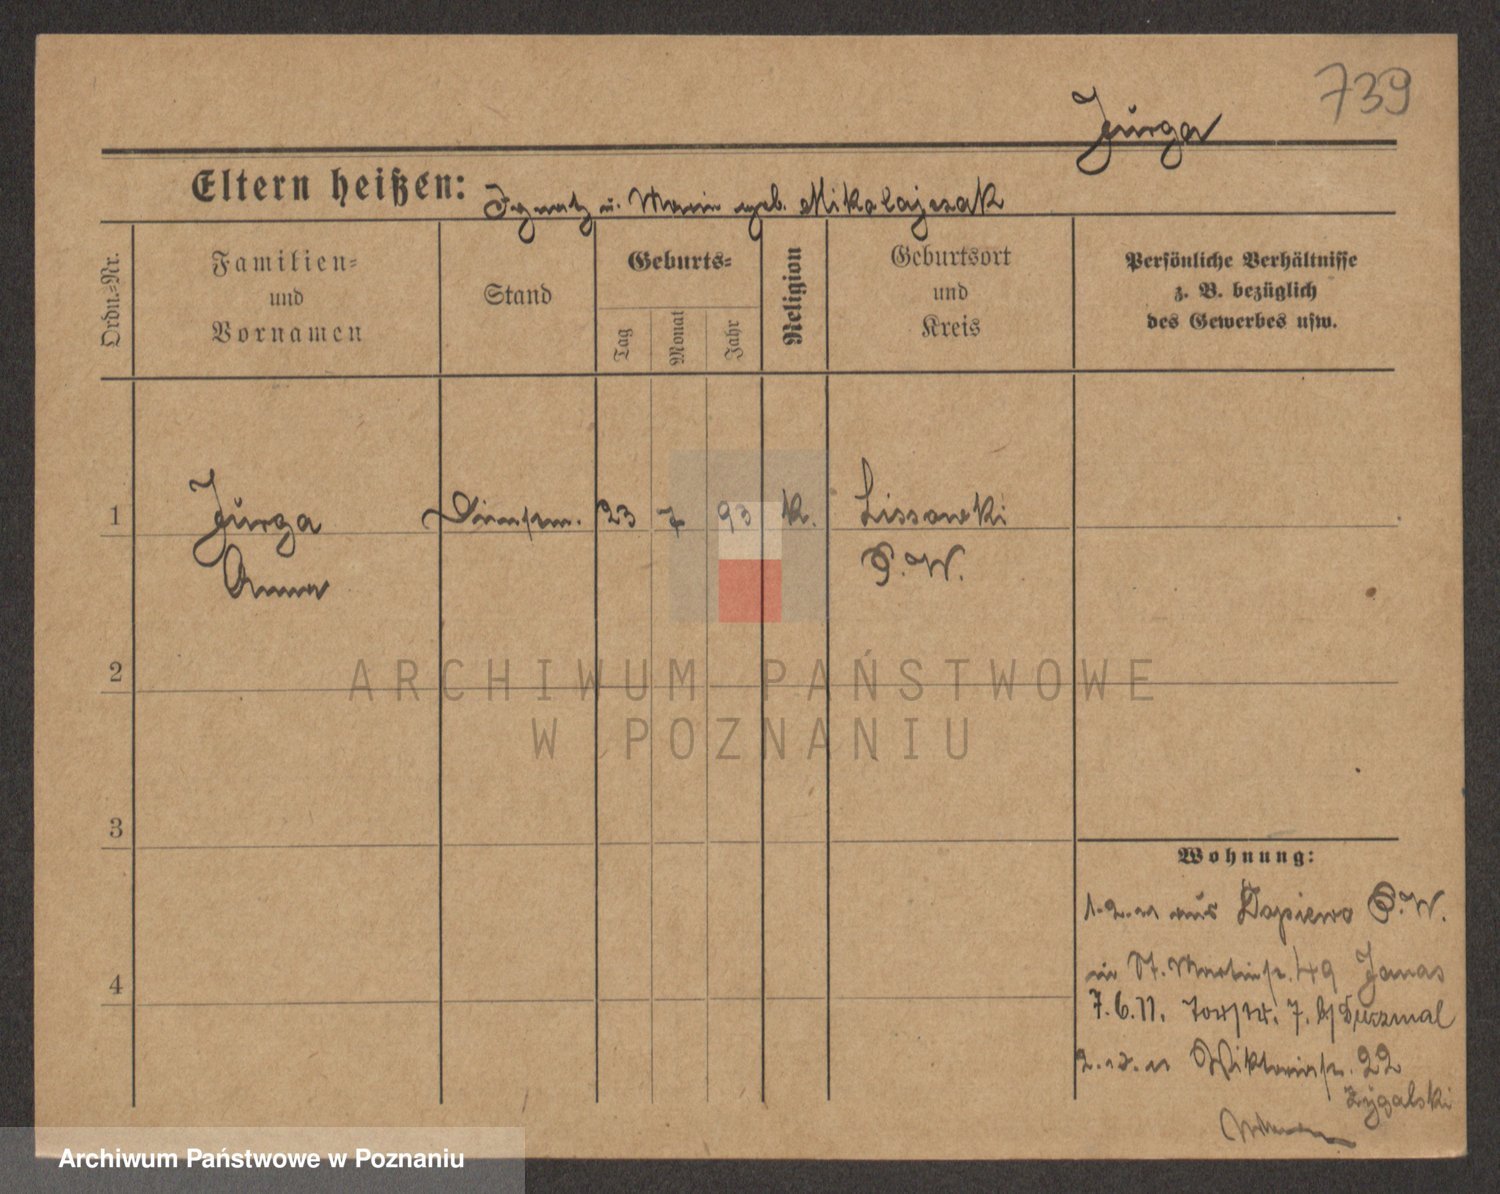 739
Jurga
Eltern heißen: Ignatz u. Marie geb. Mikolajczak
Ordn.-Nr.
Familien- und Vornamen
Stand
Geburts-
Tag
Monat
Jahr
Religion
Geburtsort und Kreis
Persönliche Verhältnisse
z. B. bezüglich
des Gewerbes usw.
1 Jurga Dienstm. 23 7 93 k. Lissowki
Anna P. W.
2
ARCHIWUM PAŃSTWOWE
W POZNANIU
3
Wohnung:
1.2.11 aus Dopiewo P. W.
in St. Martinstr. 49 Janas
4
7.6.11. 7. b/ Durzmal
Wiktoriastr. 22
Zygalski
Archiwum Państwowe w Poznaniu